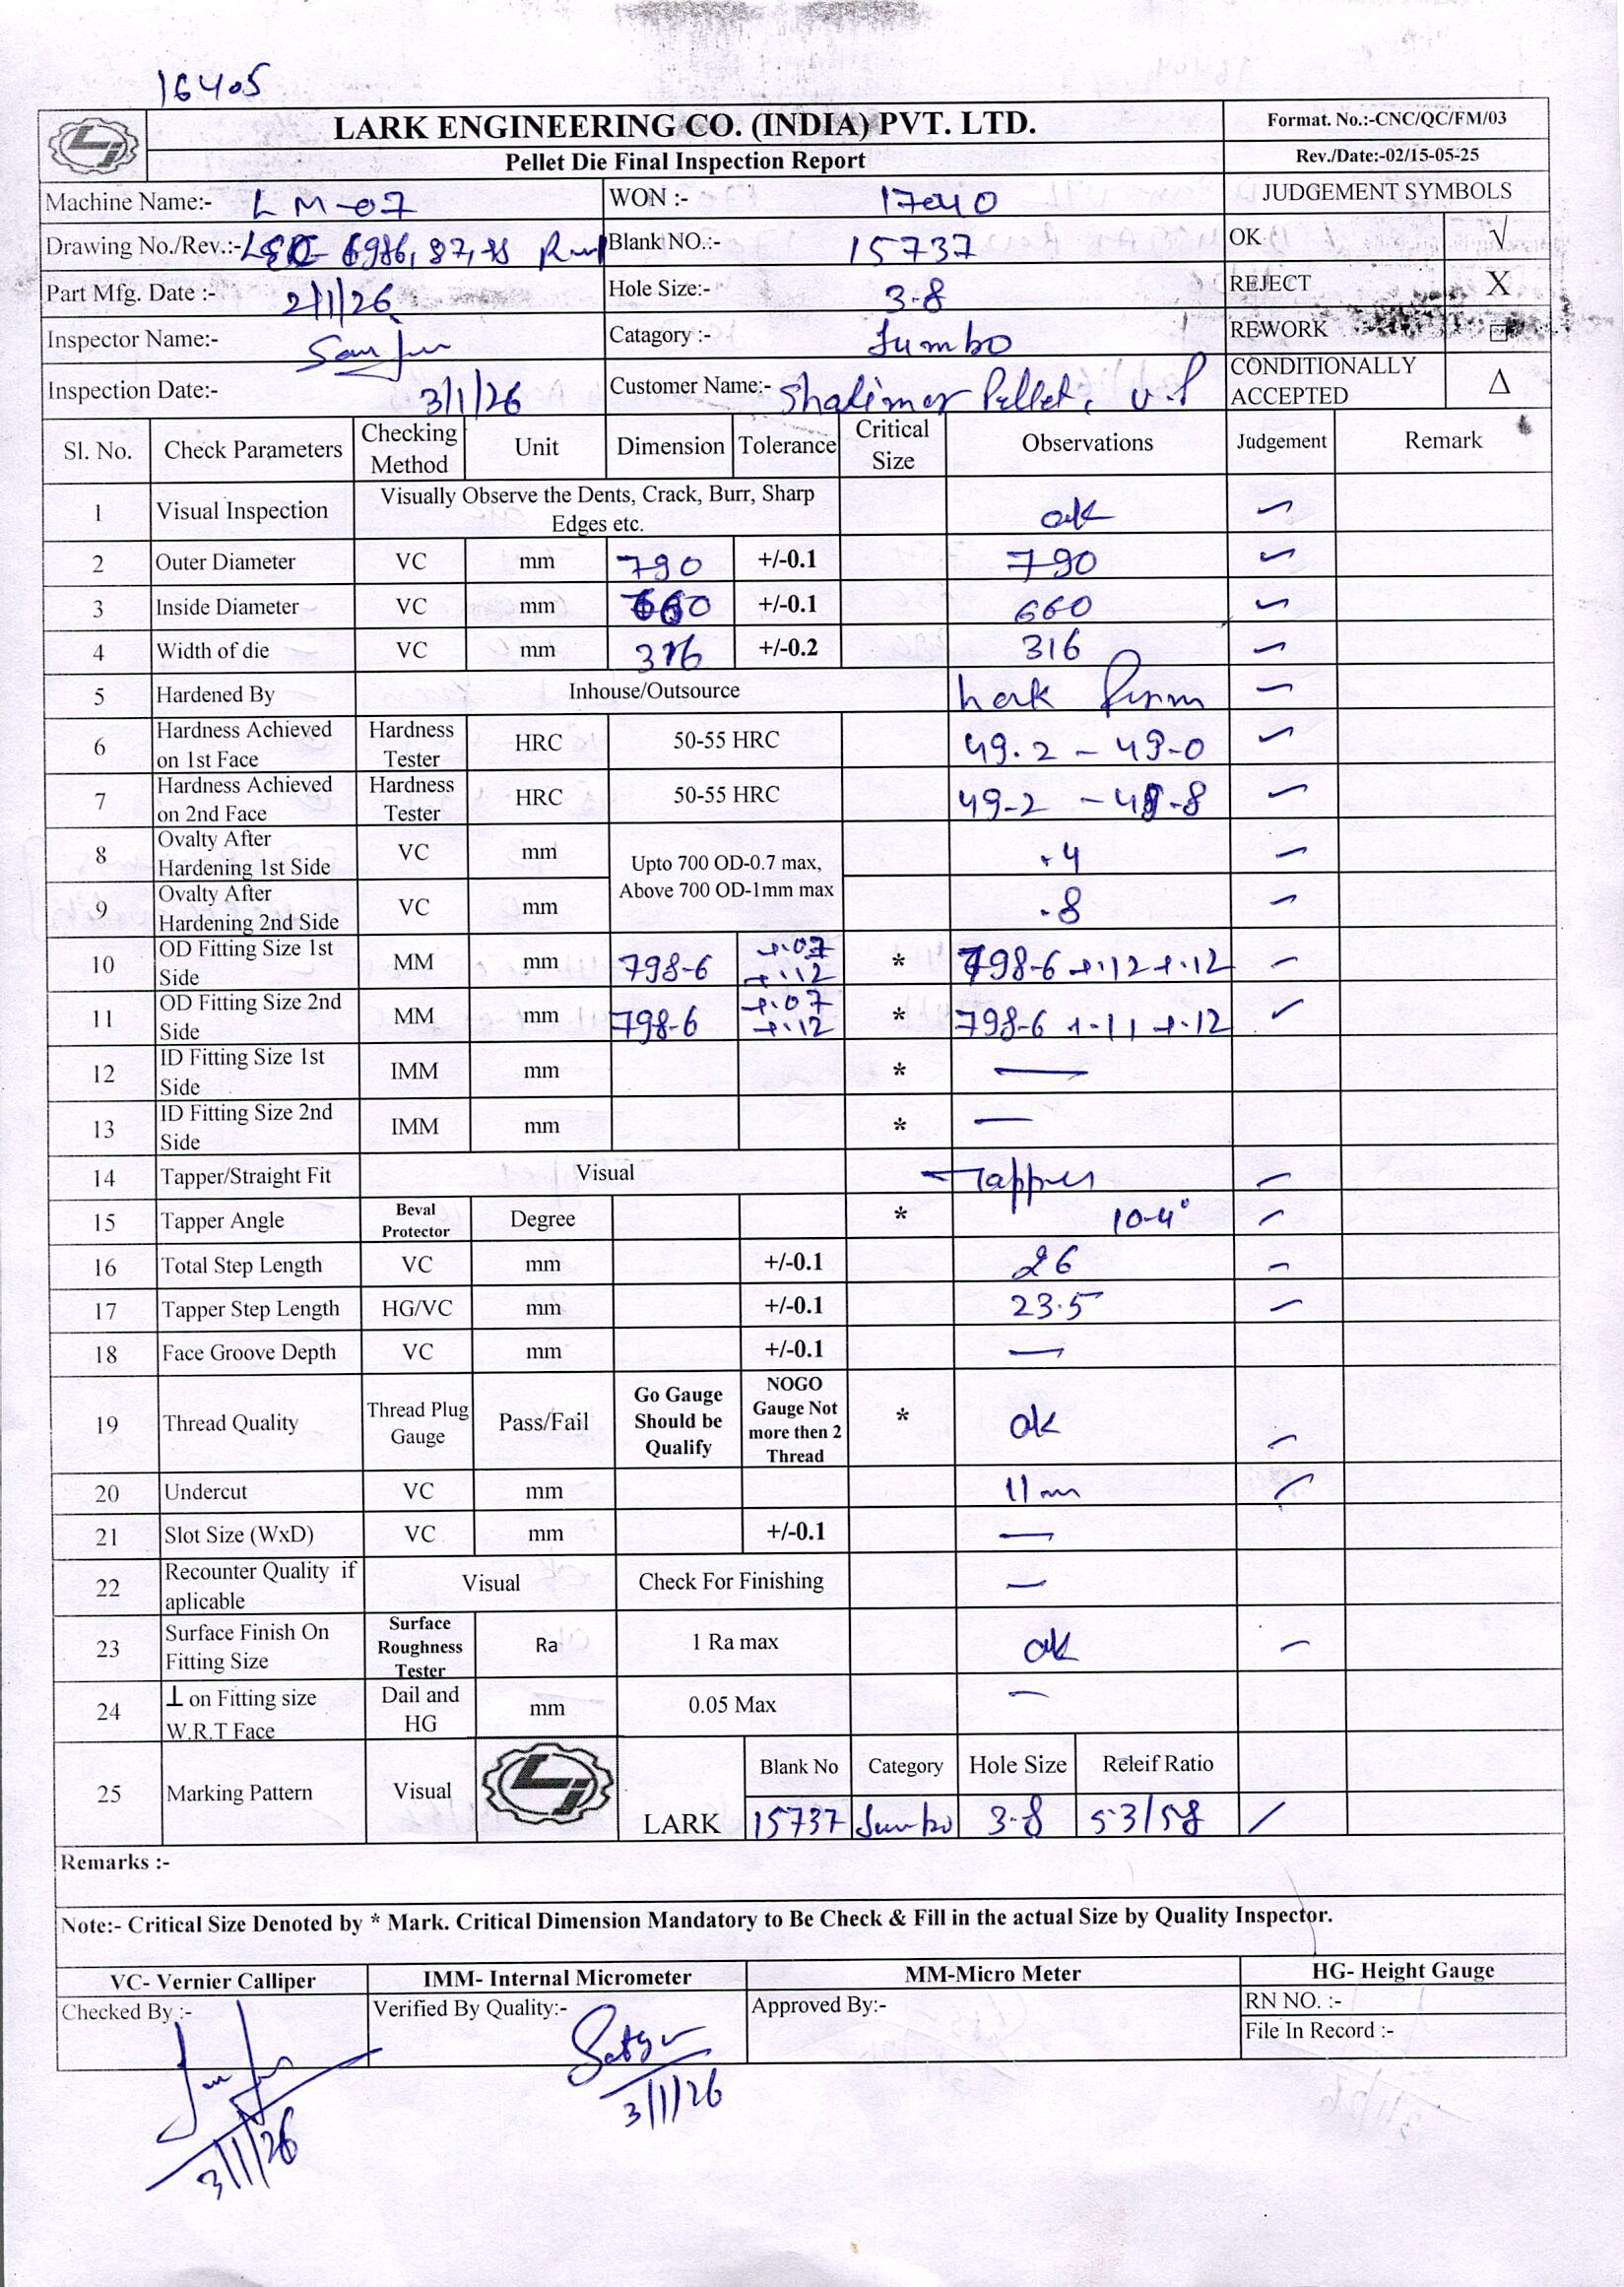 16405
LARK ENGINEERING CO. (INDIA) PVT. LTD.
Pellet Die Final Inspection Report
Format. No.:-CNC/QC/FM/03
Rev./Date:-02/15-05-25
Machine Name:- LM-07 WON :- 17040 JUDGEMENT SYMBOLS
Drawing No./Rev.:- 6986, 87, 88 Blank NO.:- 15737 OK √
Part Mfg. Date :- 2/1/26 Hole Size:- 3.8 REJECT X
Inspector Name:- Catagory :- Jumbo REWORK □
Inspection Date:- 3/1/26 Customer Name:- Shalimar Pellet, U.P CONDITIONALLY ACCEPTED Δ
Sl. No. Check Parameters Checking Method Unit Dimension Tolerance Critical Size Observations Judgement Remark
1 Visual Inspection Visually Observe the Dents, Crack, Burr, Sharp Edges etc. ok ✓
2 Outer Diameter VC mm 790 +/-0.1 790 ✓
3 Inside Diameter VC mm 660 +/-0.1 660 ✓
4 Width of die VC mm 316 +/-0.2 316 ✓
5 Hardened By Inhouse/Outsource ✓
6 Hardness Achieved on 1st Face Hardness Tester HRC 50-55 HRC 49.2 - 49-0 ✓
7 Hardness Achieved on 2nd Face Hardness Tester HRC 50-55 HRC 49-2 - 48-8 ✓
8 Ovalty After Hardening 1st Side VC mm Upto 700 OD-0.7 max, Above 700 OD-1mm max .4 ✓
9 Ovalty After Hardening 2nd Side VC mm .8 ✓
10 OD Fitting Size 1st Side MM mm 798-6 +.07 +.12 * 798-6 +.12 +.12 ✓
11 OD Fitting Size 2nd Side MM mm 798-6 +.07 +.12 * 798-6 +.11 +.12 ✓
12 ID Fitting Size 1st Side IMM mm * —
13 ID Fitting Size 2nd Side IMM mm * —
14 Tapper/Straight Fit Visual Tapper ✓
15 Tapper Angle Beval Protector Degree * 10-4° ✓
16 Total Step Length VC mm +/-0.1 26 ✓
17 Tapper Step Length HG/VC mm +/-0.1 23.5 ✓
18 Face Groove Depth VC mm +/-0.1 —
19 Thread Quality Thread Plug Gauge Pass/Fail Go Gauge Should be Qualify NOGO Gauge Not more then 2 Thread * ok ✓
20 Undercut VC mm 11 mm ✓
21 Slot Size (WxD) VC mm +/-0.1 —
22 Recounter Quality if aplicable Visual Check For Finishing —
23 Surface Finish On Fitting Size Surface Roughness Tester Ra 1 Ra max ok ✓
24 ⊥ on Fitting size W.R.T Face Dail and HG mm 0.05 Max —
25 Marking Pattern Visual LARK Blank No Category Hole Size Releif Ratio
15737 Jumbo 3.8 53/58 ✓
Remarks :-
Note:- Critical Size Denoted by * Mark. Critical Dimension Mandatory to Be Check & Fill in the actual Size by Quality Inspector.
VC- Vernier Calliper IMM- Internal Micrometer MM-Micro Meter HG- Height Gauge
Checked By :- Verified By Quality:- Approved By:- RN NO. :-
File In Record :-
3/1/26
3/1/26